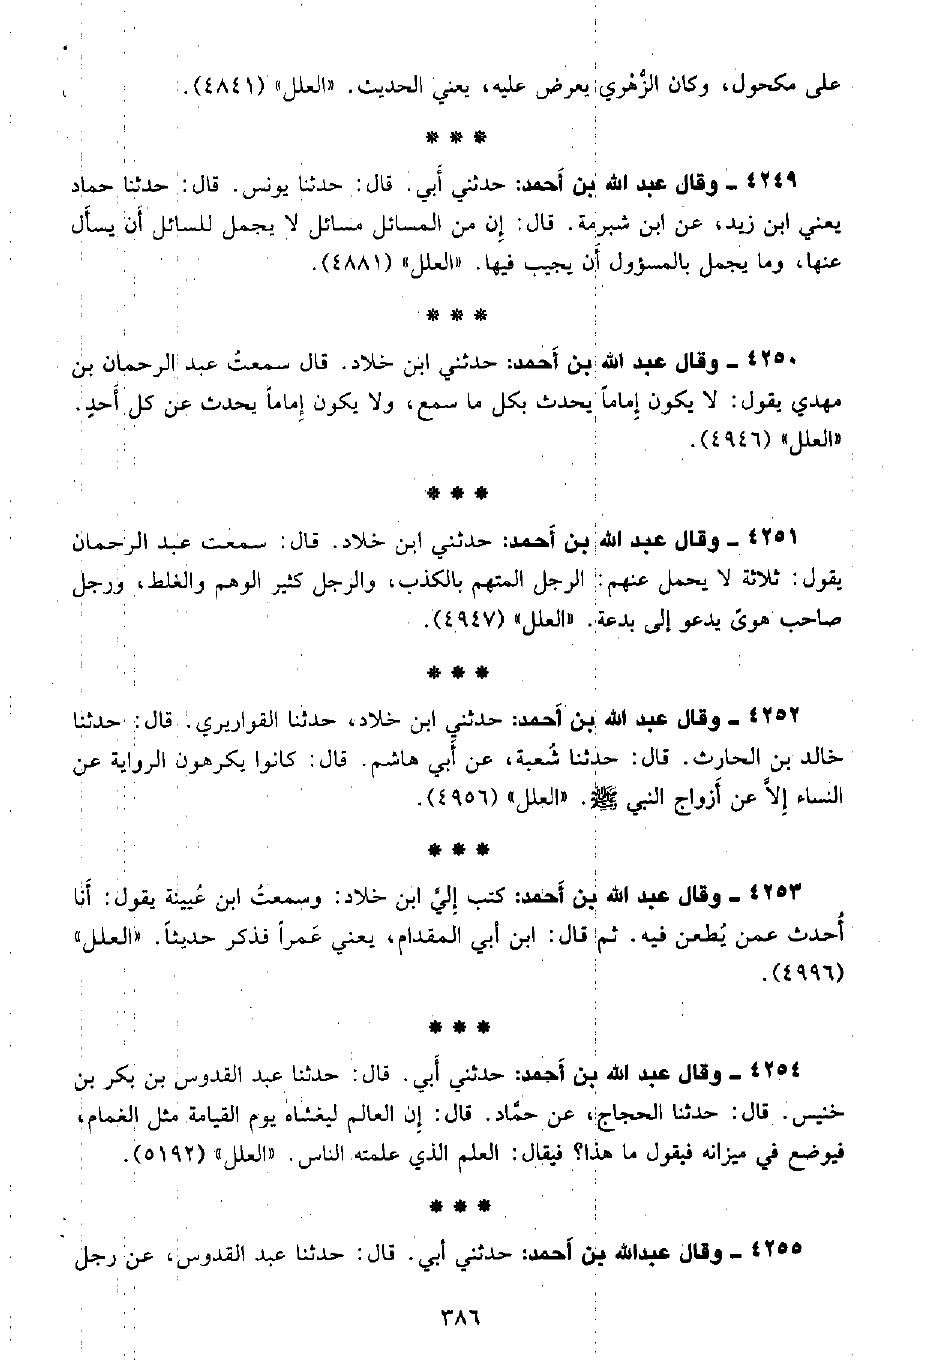 على مكحول، وكان الزُّهري يعرض عليه، يعني الحديث. «العلل» (٤٨٤١).
* * *
٤٢٤٩ ـ وقال عبد الله بن أحمد: حدثني أبي. قال: حدثنا يونس. قال: حدثنا حماد
يعني ابن زيد، عن ابن شبرمة. قال: إن من المسائل مسائل لا يجمل للسائل أن يسأل
عنها، وما يجمل بالمسؤول أن يجيب فيها. «العلل» (٤٨٨١).
* * *
٤٢٥٠ ـ وقال عبد الله بن أحمد: حدثني ابن خلاد. قال سمعتُ عبد الرحمان بن
مهدي يقول: لا يكون إماماً يحدث بكل ما سمع، ولا يكون إماماً يحدث عن كل أحدٍ.
«العلل» (٤٩٤٦).
* * *
٤٢٥١ ـ وقال عبد الله بن أحمد: حدثني ابن خلاد. قال: سمعت عبد الرحمان
يقول: ثلاثة لا يحمل عنهم: الرجل المتهم بالكذب، والرجل كثير الوهم والغلط، ورجل
صاحب هوىً يدعو إلى بدعة. «العلل» (٤٩٤٧).
* * *
٤٢٥٢ ـ وقال عبد الله بن أحمد: حدثني ابن خلاد، حدثنا القواريري. قال: حدثنا
خالد بن الحارث. قال: حدثنا شُعبة، عن أبي هاشم. قال: كانوا يكرهون الرواية عن
النساء إلاَّ عن أزواج النبي ﷺ. «العلل» (٤٩٥٦).
* * *
٤٢٥٣ ـ وقال عبد الله بن أحمد: كتب إليَّ ابن خلاد: وسمعتُ ابن عُيينة يقول: أنا
أُحدث عمن يُطعن فيه. ثم قال: ابن أبي المقدام، يعني عَمراً فذكر حديثاً. «العلل»
(٤٩٩٦).
* * *
٤٢٥٤ ـ وقال عبد الله بن أحمد: حدثني أبي. قال: حدثنا عبد القدوس بن بكر بن
خنيس. قال: حدثنا الحجاج، عن حمَّاد. قال: إن العالم ليغشاه يوم القيامة مثل الغمام،
فيوضع في ميزانه فيقول ما هذا؟ فيقال: العلم الذي علمته الناس. «العلل» (٥١٩٢).
* * *
٤٢٥٥ ـ وقال عبدالله بن أحمد: حدثني أبي. قال: حدثنا عبد القدوس، عن رجل
٣٨٦